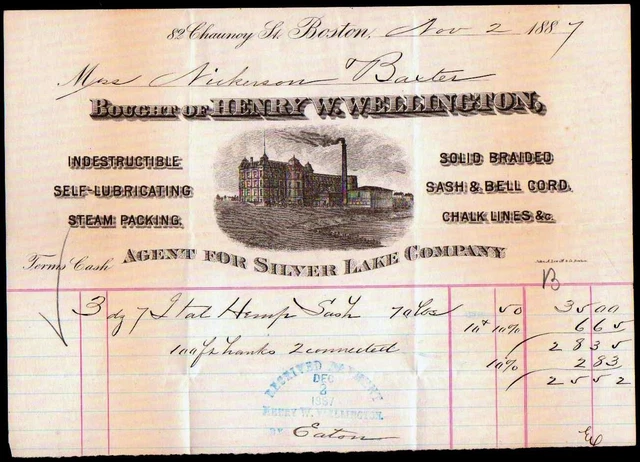 82 Chauncy St. Boston, Nov 2 1887
Mess Nickerson & Baxter
BOUGHT OF HENRY W. WELLINGTON,
INDESTRUCTIBLE
SELF-LUBRICATING
STEAM PACKING.
SOLID BRAIDED
SASH & BELL CORD.
CHALK LINES &c.
AGENT FOR SILVER LAKE COMPANY
Terms Cash
B
3 dz 7 Ital Hemp Sash 70 lbs 50 35 00
10 + 10% 6 65
100 ft hanks 2 connected 28 35
10% 2 83
25 52
RECEIVED PAYMENT
DEC
2
1887
HENRY W. WELLINGTON.
Eaton